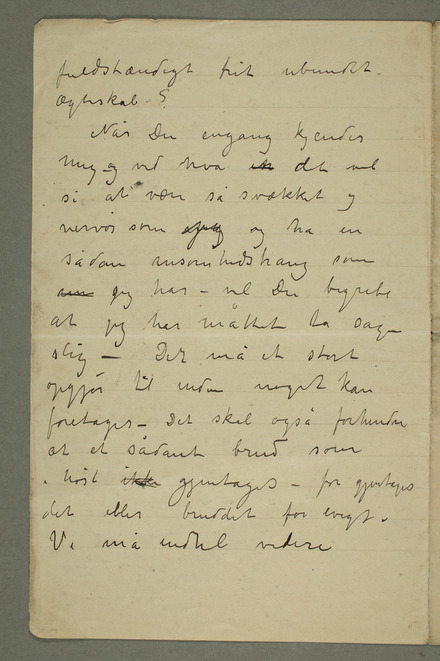 fuldstændigt frit ubundet
ægteskab.?
Når Du engang kjender
mig og ved hva det vil
si at være så svækket og
nervøs som jeg og ha en
sådan ensomhedstrang som
jeg har – vil Du begribe
at jeg har måttet ta sagen
slig – Der må et stort
opgjør til inden noget kan
foretages – Det skal også forhindre
at et sådant brud som
i høst ikke gjentages – for gjentages
det blir bruddet for evigt.
Vi må indtil videre